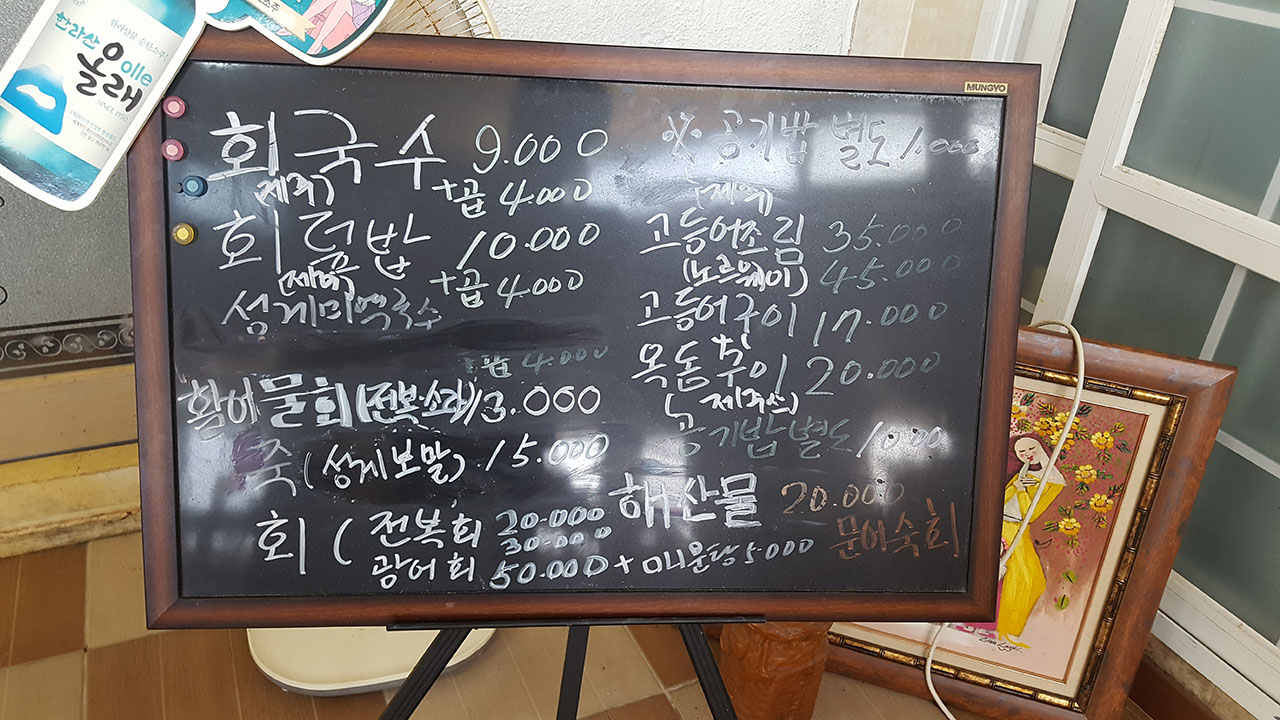 한라산
올래
olle
MUNGYO
회국수 9.000
(제주) +곱 4.000
회덮밥 10.000
(제주) +곱 4.000
성게미역국수
+곱 4.000
활어물회(전복.소라) 13.000
죽(성게보말) 15.000
회(전복회 20.000
30.000
광어회 50.000+매운탕 5.000
※ 공기밥 별도 1.000
(제주)
고등어조림 35.000
(노르웨이) 45.000
고등어구이 17.000
옥돔구이 20.000
제주산)
공기밥별도 1000
해산물 20.000
문어숙회